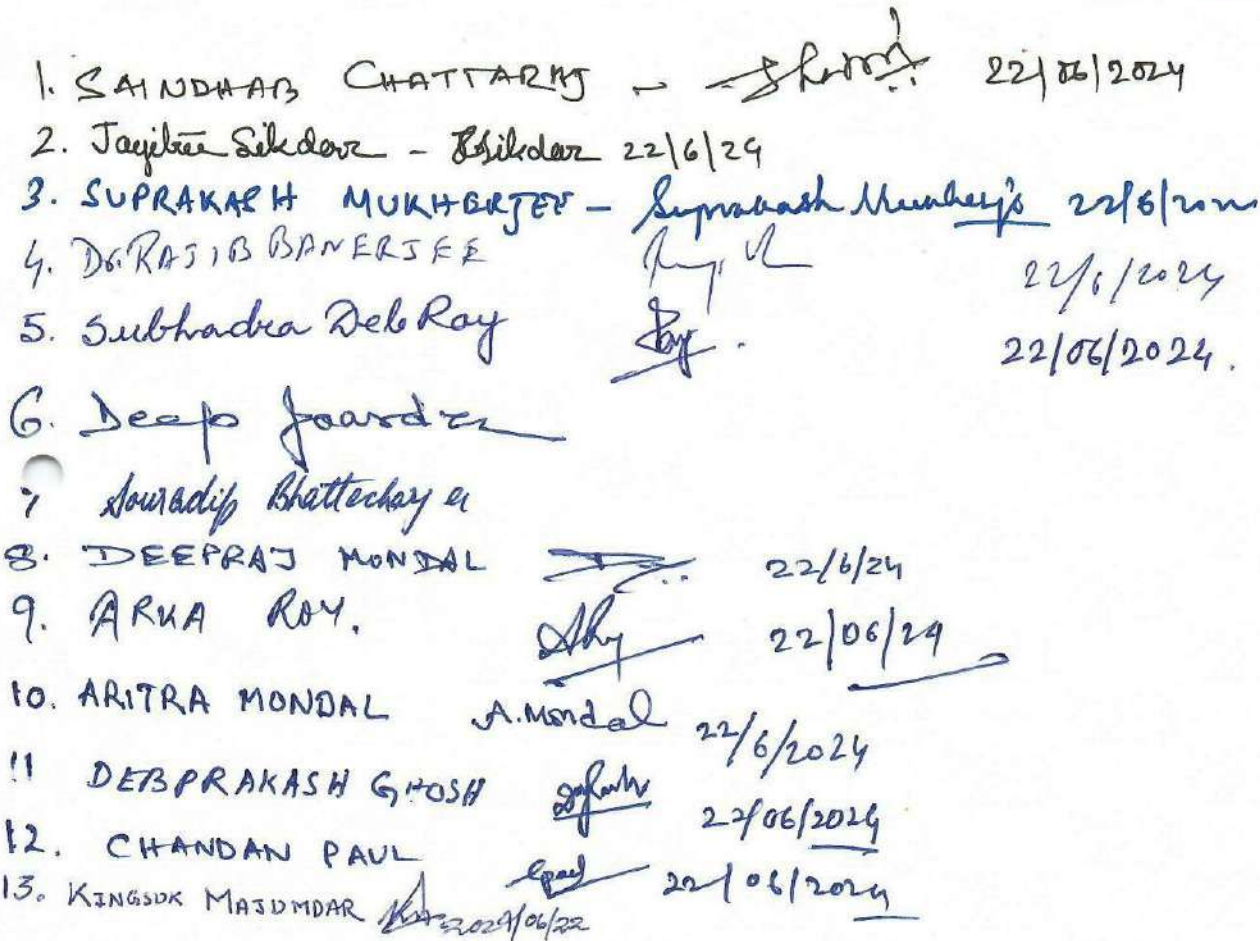 1. SAINDHAB CHATTARAJ - 22/06/2024
2. Sikdar - Sikdar 22/6/24
3. SUPRAKASH MUKHERJEE - Suprakash Mukherjee 22/6/2024
4. Dr. RAJIB BANERJEE 22/6/2024
5. Subhadra Deb Roy Roy. 22/06/2024.
6. Deep Joardar
7 Souradip Bhattacharyya
8. DEEPRAJ MONDAL 22/6/24
9. ARKA ROY. ARoy 22/06/24
10. ARITRA MONDAL A.Mondal 22/6/2024
11 DEBPRAKASH GHOSH 22/06/2024
12. CHANDAN PAUL Cpaul 22/06/2024
13. KINGSUK MAJUMDAR 2024/06/22